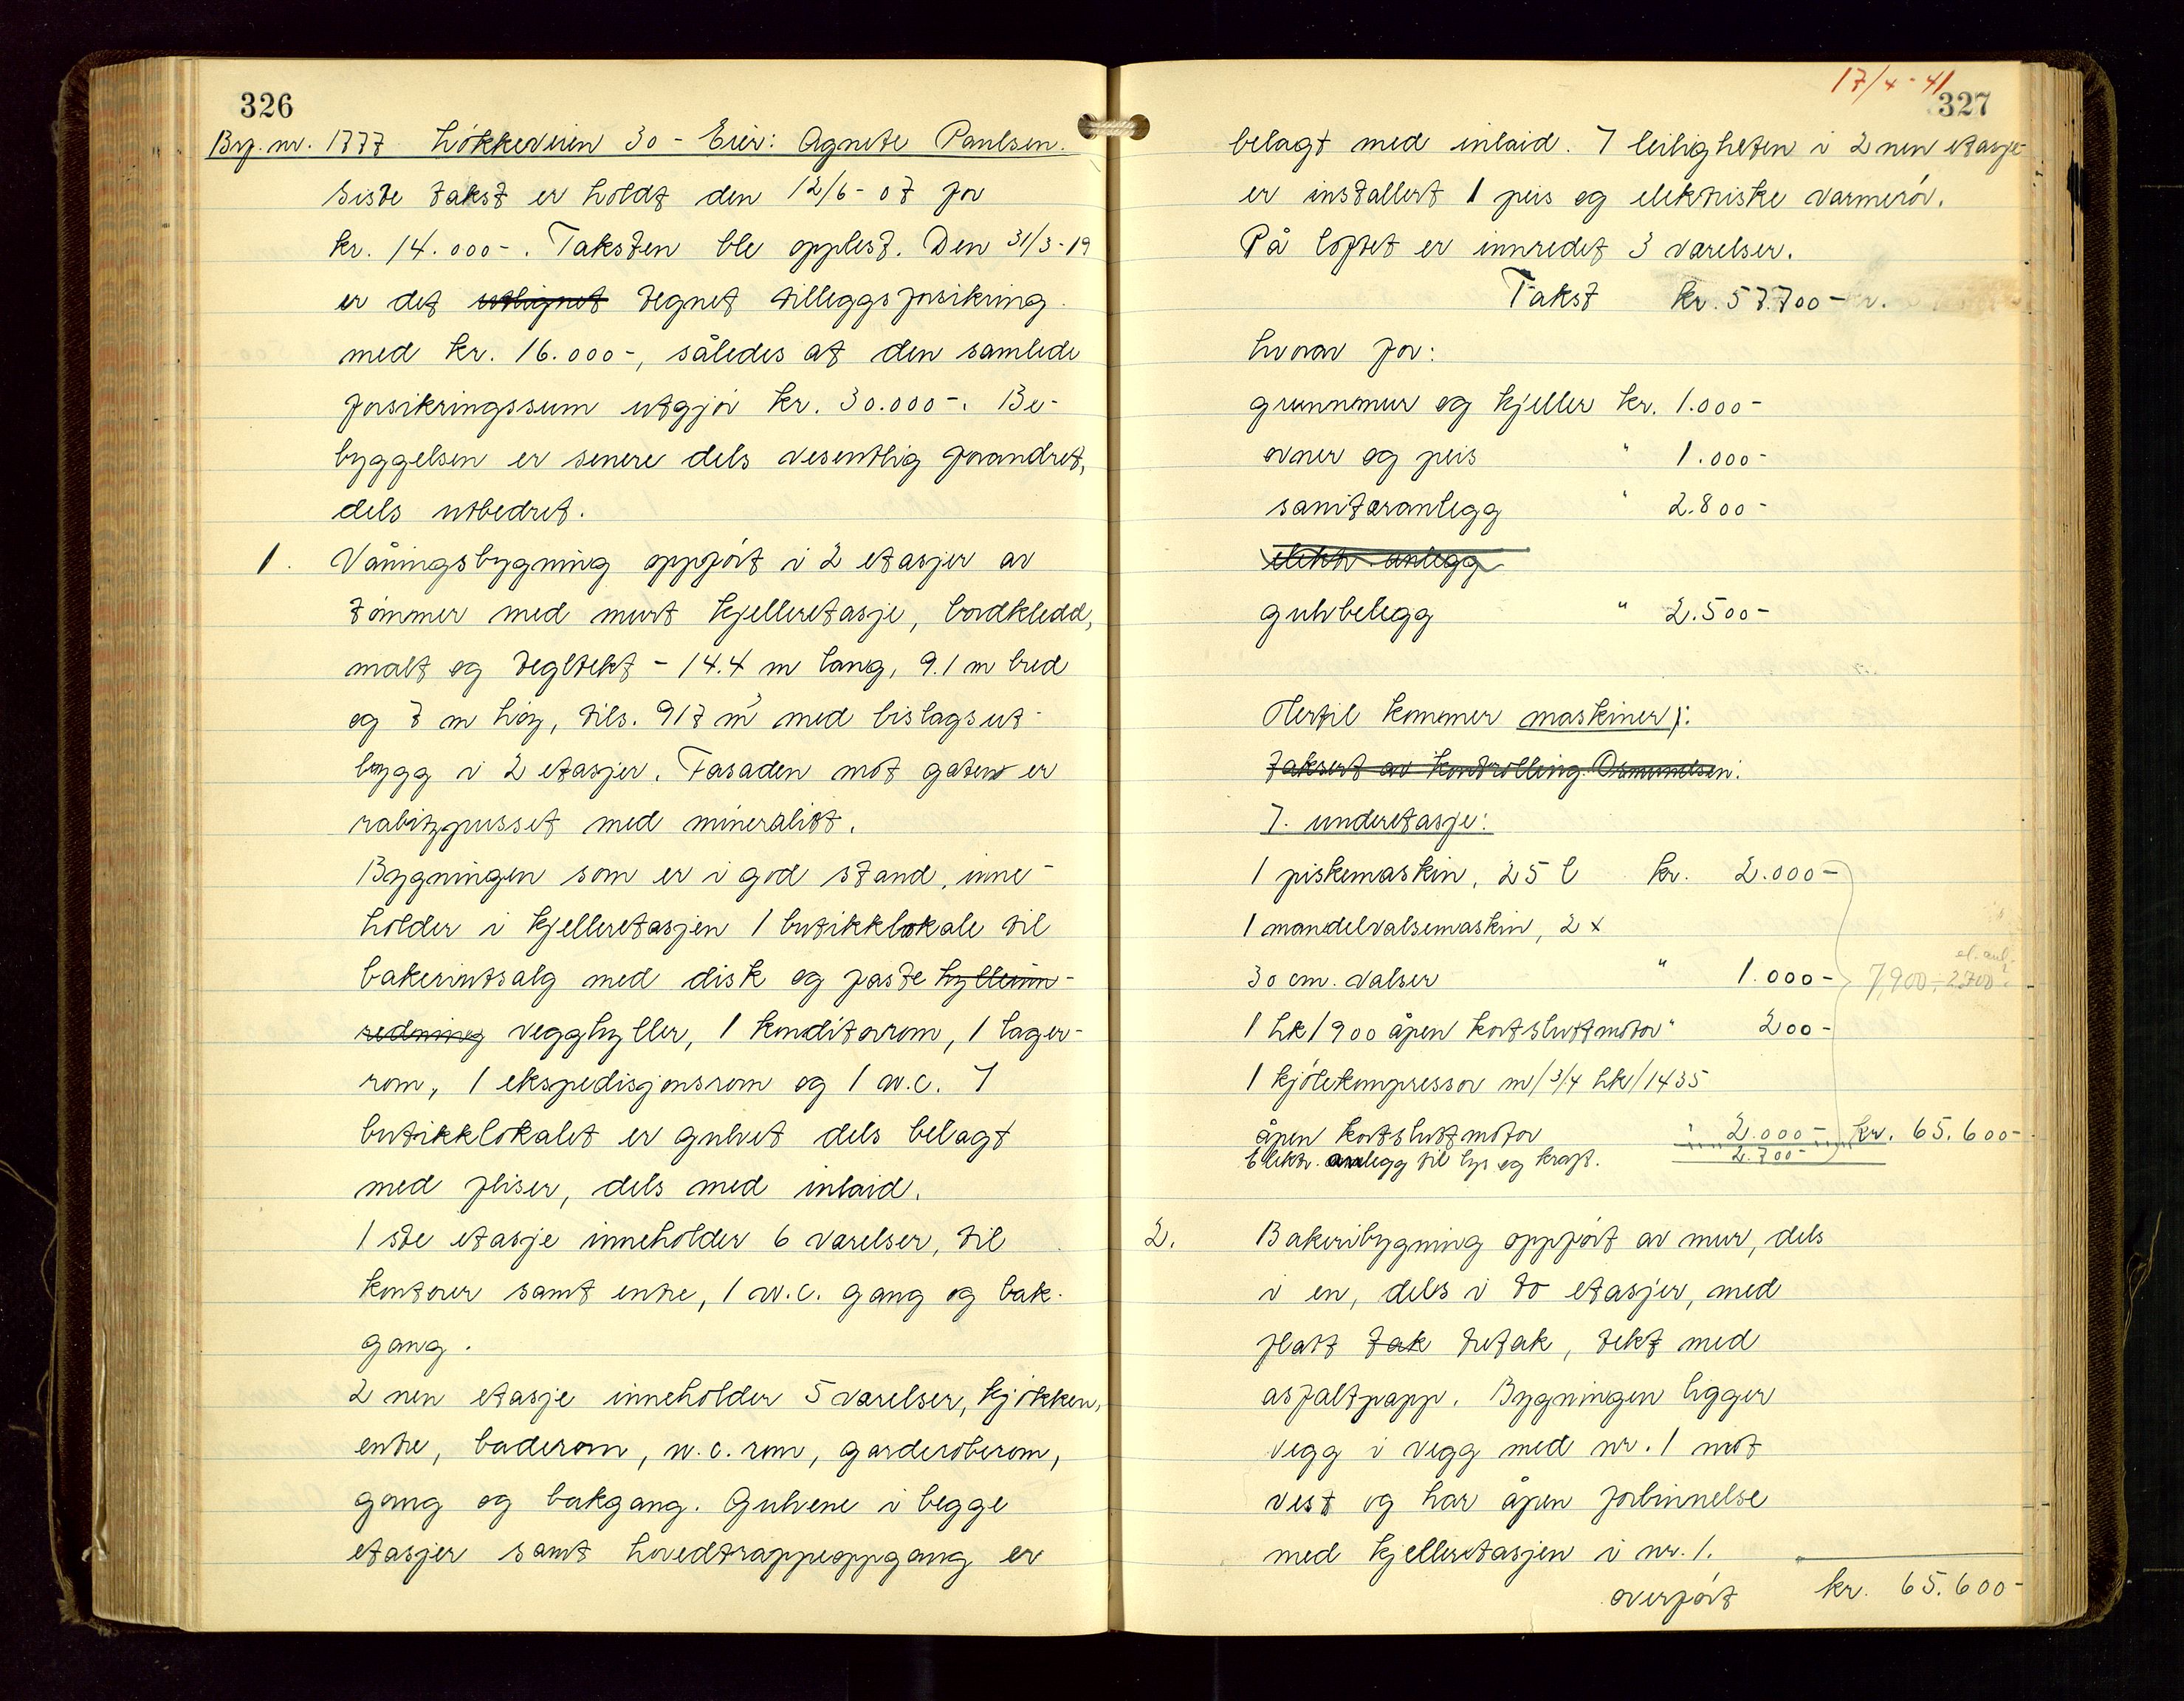 326
Brp. nr. 1777 Løkkeveien 30 - Eier: Agnete Paulsen.
Siste takst er holdt den 12/6-07 for
kr. 14.000-. Taksten ble opplest. Den 31/3-19
er det utlignet tegnet tilleggsforsikring
med kr. 16.000-, således at den samlede
forsikringssum utgjør kr. 30.000-. Be-
byggelsen er senere dels vesentlig forandret,
dels utbedret.
1. Våningsbygning oppført i 2 etasjer av
tømmer med murt kjelleretasje, bordkledd,
malt og tegltekt - 14.4 m lang, 9.1 m bred
og 7 m høy, tils. 917 m³ med bislagsut-
bygg i 2 etasjer. Fasaden mot gaten er
rabitzpusset med mineralitt.
Bygningen som er i god stand, inne-
holder i kjelleretasjen 1 butikklokale til
bakeriutsalg med disk og faste hylleinn-
redning vegghyller, 1 konditorrom, 1 lager-
rom, 1 ekspedisjonsrom og 1 w.c. I
butikklokalet er gulvet dels belagt
med fliser, dels med inlaid.
1 ste etasje inneholder 6 værelser, til
kontorer samt entre, 1 w.c. gang og bak-
gang.
2 nen etasje inneholder 5 værelser, kjøkken,
entre, baderom, w.c. rom, garderoberom,
gang og bakgang. Gulvene i begge
etasjer samt hovedtrappeoppgang er
17/4-41
327
belagt med inlaid. I leiligheten i 2 nen etasje
er installert 1 peis og elektriske varmerør.
På loftet er innredet 3 værelser.
Takst kr. 57.700- kr.
hvorav for:
grunnmur og kjeller kr. 1.000-
ovner og peis " 1.000-
sanitæranlegg " 2.800-
elektr. anlegg
gulvbelegg " 2.500-
Hertil kommer maskiner):
taksert av kontrolling. Osmundsen:
I. underetasje:
1 piskemaskin, 25 l kr. 2.000-
1 mandelvalsemaskin, 2 x
30 cm. valser " 1.000-
el. anl.
7,900 ÷ 2700
1 hk/900 åpen kortsluttmotor " 200-
1 kjølekompressor m/3/4 hk/1435
åpen kortsluttmotor " 2.000- kr. 65.600-
Elektr. anlegg til lys og kraft. 2.700-
2. Bakeribygning oppført av mur, dels
i en, dels i to etasjer, med
flatt tak tretak, tekt med
asfaltpapp. Bygningen ligger
vegg i vegg med nr. 1 mot
vest og har åpen forbinnelse
med kjelleretasjen i nr. 1.
overført kr. 65.600-